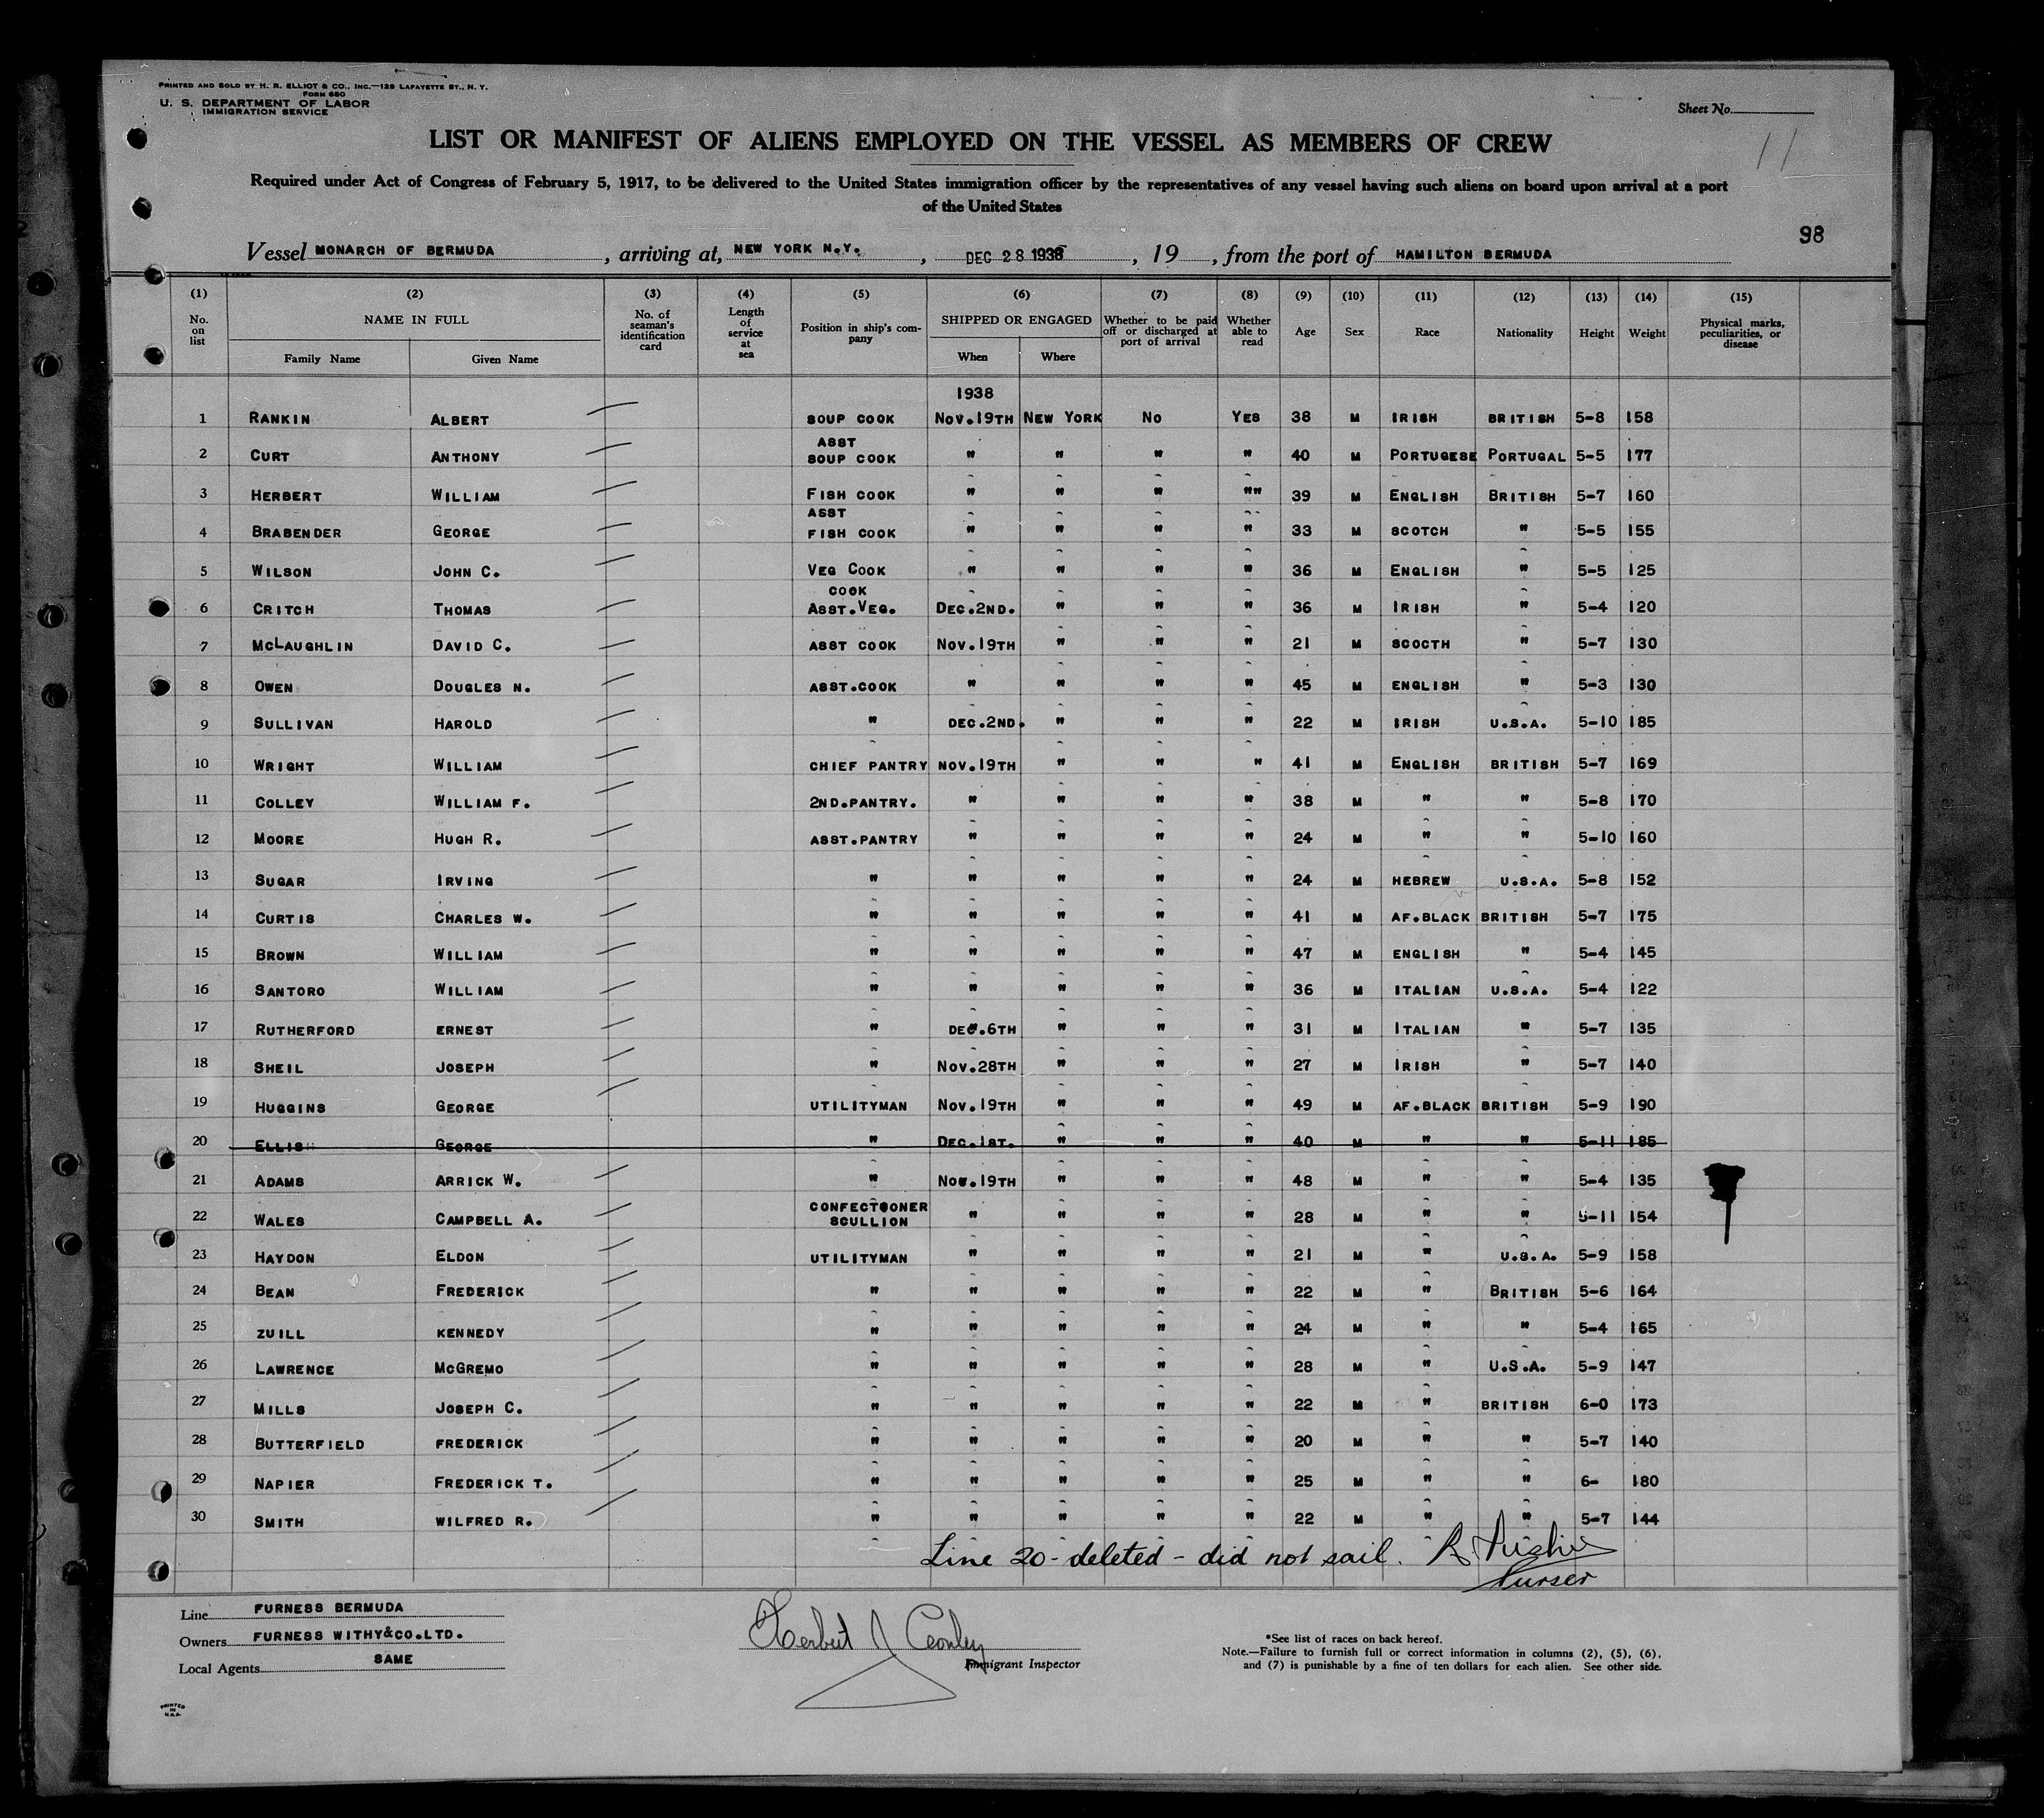 PRINTED AND SOLD BY H. R. ELLIOT & CO., INC.—129 LAFAYETTE ST., N. Y.
FORM 680
U. S. DEPARTMENT OF LABOR
IMMIGRATION SERVICE
Sheet No.
11
LIST OR MANIFEST OF ALIENS EMPLOYED ON THE VESSEL AS MEMBERS OF CREW
Required under Act of Congress of February 5, 1917, to be delivered to the United States immigration officer by the representatives of any vessel having such aliens on board upon arrival at a port
of the United States
98
Vessel MONARCH OF BERMUDA, arriving at, NEW YORK N.Y., DEC 28 1938, 19, from the port of HAMILTON BERMUDA
(1) No. on list (2) NAME IN FULL Family Name Given Name (3) No. of seaman's identification card (4) Length of service at sea (5) Position in ship's company (6) SHIPPED OR ENGAGED When Where (7) Whether to be paid off or discharged at port of arrival (8) Whether able to read (9) Age (10) Sex (11) Race (12) Nationality (13) Height (14) Weight (15) Physical marks, peculiarities, or disease
1938
1 RANKIN ALBERT SOUP COOK NOV.19TH NEW YORK NO YES 38 M IRISH BRITISH 5-8 158
2 CURT ANTHONY ASST SOUP COOK " " " " 40 M PORTUGESE PORTUGAL 5-5 177
3 HERBERT WILLIAM FISH COOK " " " "" 39 M ENGLISH BRITISH 5-7 160
4 BRABENDER GEORGE ASST FISH COOK " " " " 33 M SCOTCH " 5-5 155
5 WILSON JOHN C. VEG COOK " " " " 36 M ENGLISH " 5-5 125
6 CRITCH THOMAS COOK ASST.VEG. DEC.2ND. " " " 36 M IRISH " 5-4 120
7 MCLAUGHLIN DAVID C. ASST COOK NOV.19TH " " " 21 M SCOCTH " 5-7 130
8 OWEN DOUGLES N. ASST.COOK " " " " 45 M ENGLISH " 5-3 130
9 SULLIVAN HAROLD " DEC.2ND. " " " 22 M IRISH U.S.A. 5-10 185
10 WRIGHT WILLIAM CHIEF PANTRY NOV.19TH " " " 41 M ENGLISH BRITISH 5-7 169
11 COLLEY WILLIAM F. 2ND.PANTRY. " " " " 38 M " " 5-8 170
12 MOORE HUGH R. ASST.PANTRY " " " " 24 M " " 5-10 160
13 SUGAR IRVING " " " " " 24 M HEBREW U.S.A. 5-8 152
14 CURTIS CHARLES W. " " " " " 41 M AF.BLACK BRITISH 5-7 175
15 BROWN WILLIAM " " " " " 47 M ENGLISH " 5-4 145
16 SANTORO WILLIAM " " " " " 36 M ITALIAN U.S.A. 5-4 122
17 RUTHERFORD ERNEST " DEC.6TH " " " 31 M ITALIAN " 5-7 135
18 SHEIL JOSEPH " NOV.28TH " " " 27 M IRISH " 5-7 140
19 HUGGINS GEORGE UTILITYMAN NOV.19TH " " " 49 M AF.BLACK BRITISH 5-9 190
20 ELLIS GEORGE " DEC.1ST. " " " 40 M " " 5-11 185
21 ADAMS ARRICK W. " NOV.19TH " " " 48 M " " 5-4 135
22 WALES CAMPBELL A. CONFECTIONER SCULLION " " " " 28 M " " 5-11 154
23 HAYDON ELDON UTILITYMAN " " " " 21 M " U.S.A. 5-9 158
24 BEAN FREDERICK " " " " " 22 M " BRITISH 5-6 164
25 ZUILL KENNEDY " " " " " 24 M " " 5-4 165
26 LAWRENCE MCGREMO " " " " " 28 M " U.S.A. 5-9 147
27 MILLS JOSEPH C. " " " " " 22 M " BRITISH 6-0 173
28 BUTTERFIELD FREDERICK " " " " " 20 M " " 5-7 140
29 NAPIER FREDERICK T. " " " " " 25 M " " 6- 180
30 SMITH WILFRED R. " " " " " 22 M " " 5-7 144
Line 20 - deleted - did not sail. R.
Purser
Line FURNESS BERMUDA
Owners FURNESS WITHY&CO.LTD.
Local Agents SAME
Herbert J
Immigrant Inspector
*See list of races on back hereof.
Note.—Failure to furnish full or correct information in columns (2), (5), (6),
and (7) is punishable by a fine of ten dollars for each alien. See other side.
PRINTED
IN
U.S.A.